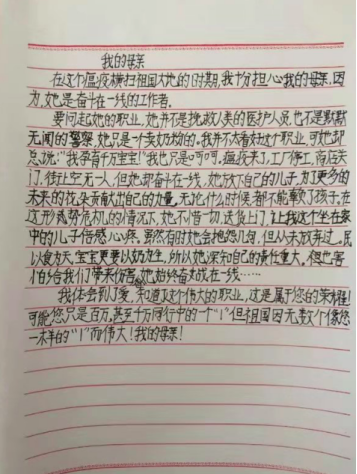 我的母亲
在这个瘟疫横扫祖国大地的时期,我十分担心我的母亲,因
为,她是奋斗在一线的工作者。
要问起她的职业,她并不是挽救人类的医护人员,也不是默默
无闻的警察,她只是一个卖奶粉的。我并不太看好这个职业,可她却
总说:"我孕育千万宝宝!"我也只是呵呵。瘟疫来了,工厂停工,商店关
门,街上空无一人,但她却奋斗在一线,她放下自己的儿子,为了更多的
未来的花朵贡献出自己的力量。无论什么时候,都不能饿了孩子,在
这形式势危机的情况下,她不惜一切,送货上门,让我这个坐在家
中的儿子倍感心疼。虽然有时她会抱怨几句,但从未放弃过。民
以食为天,宝宝更要以奶为生,所以她深知自己的责任重大,但也害
怕给我们带来伤害,她始终奋战在一线……
我体会到了爱,知道了这个伟大的职业,这是属于您的荣耀!
可能您只是百万,甚至千万同行中的一个"1"但祖国因无数个像您
一样的"1"而伟大!我的母亲!